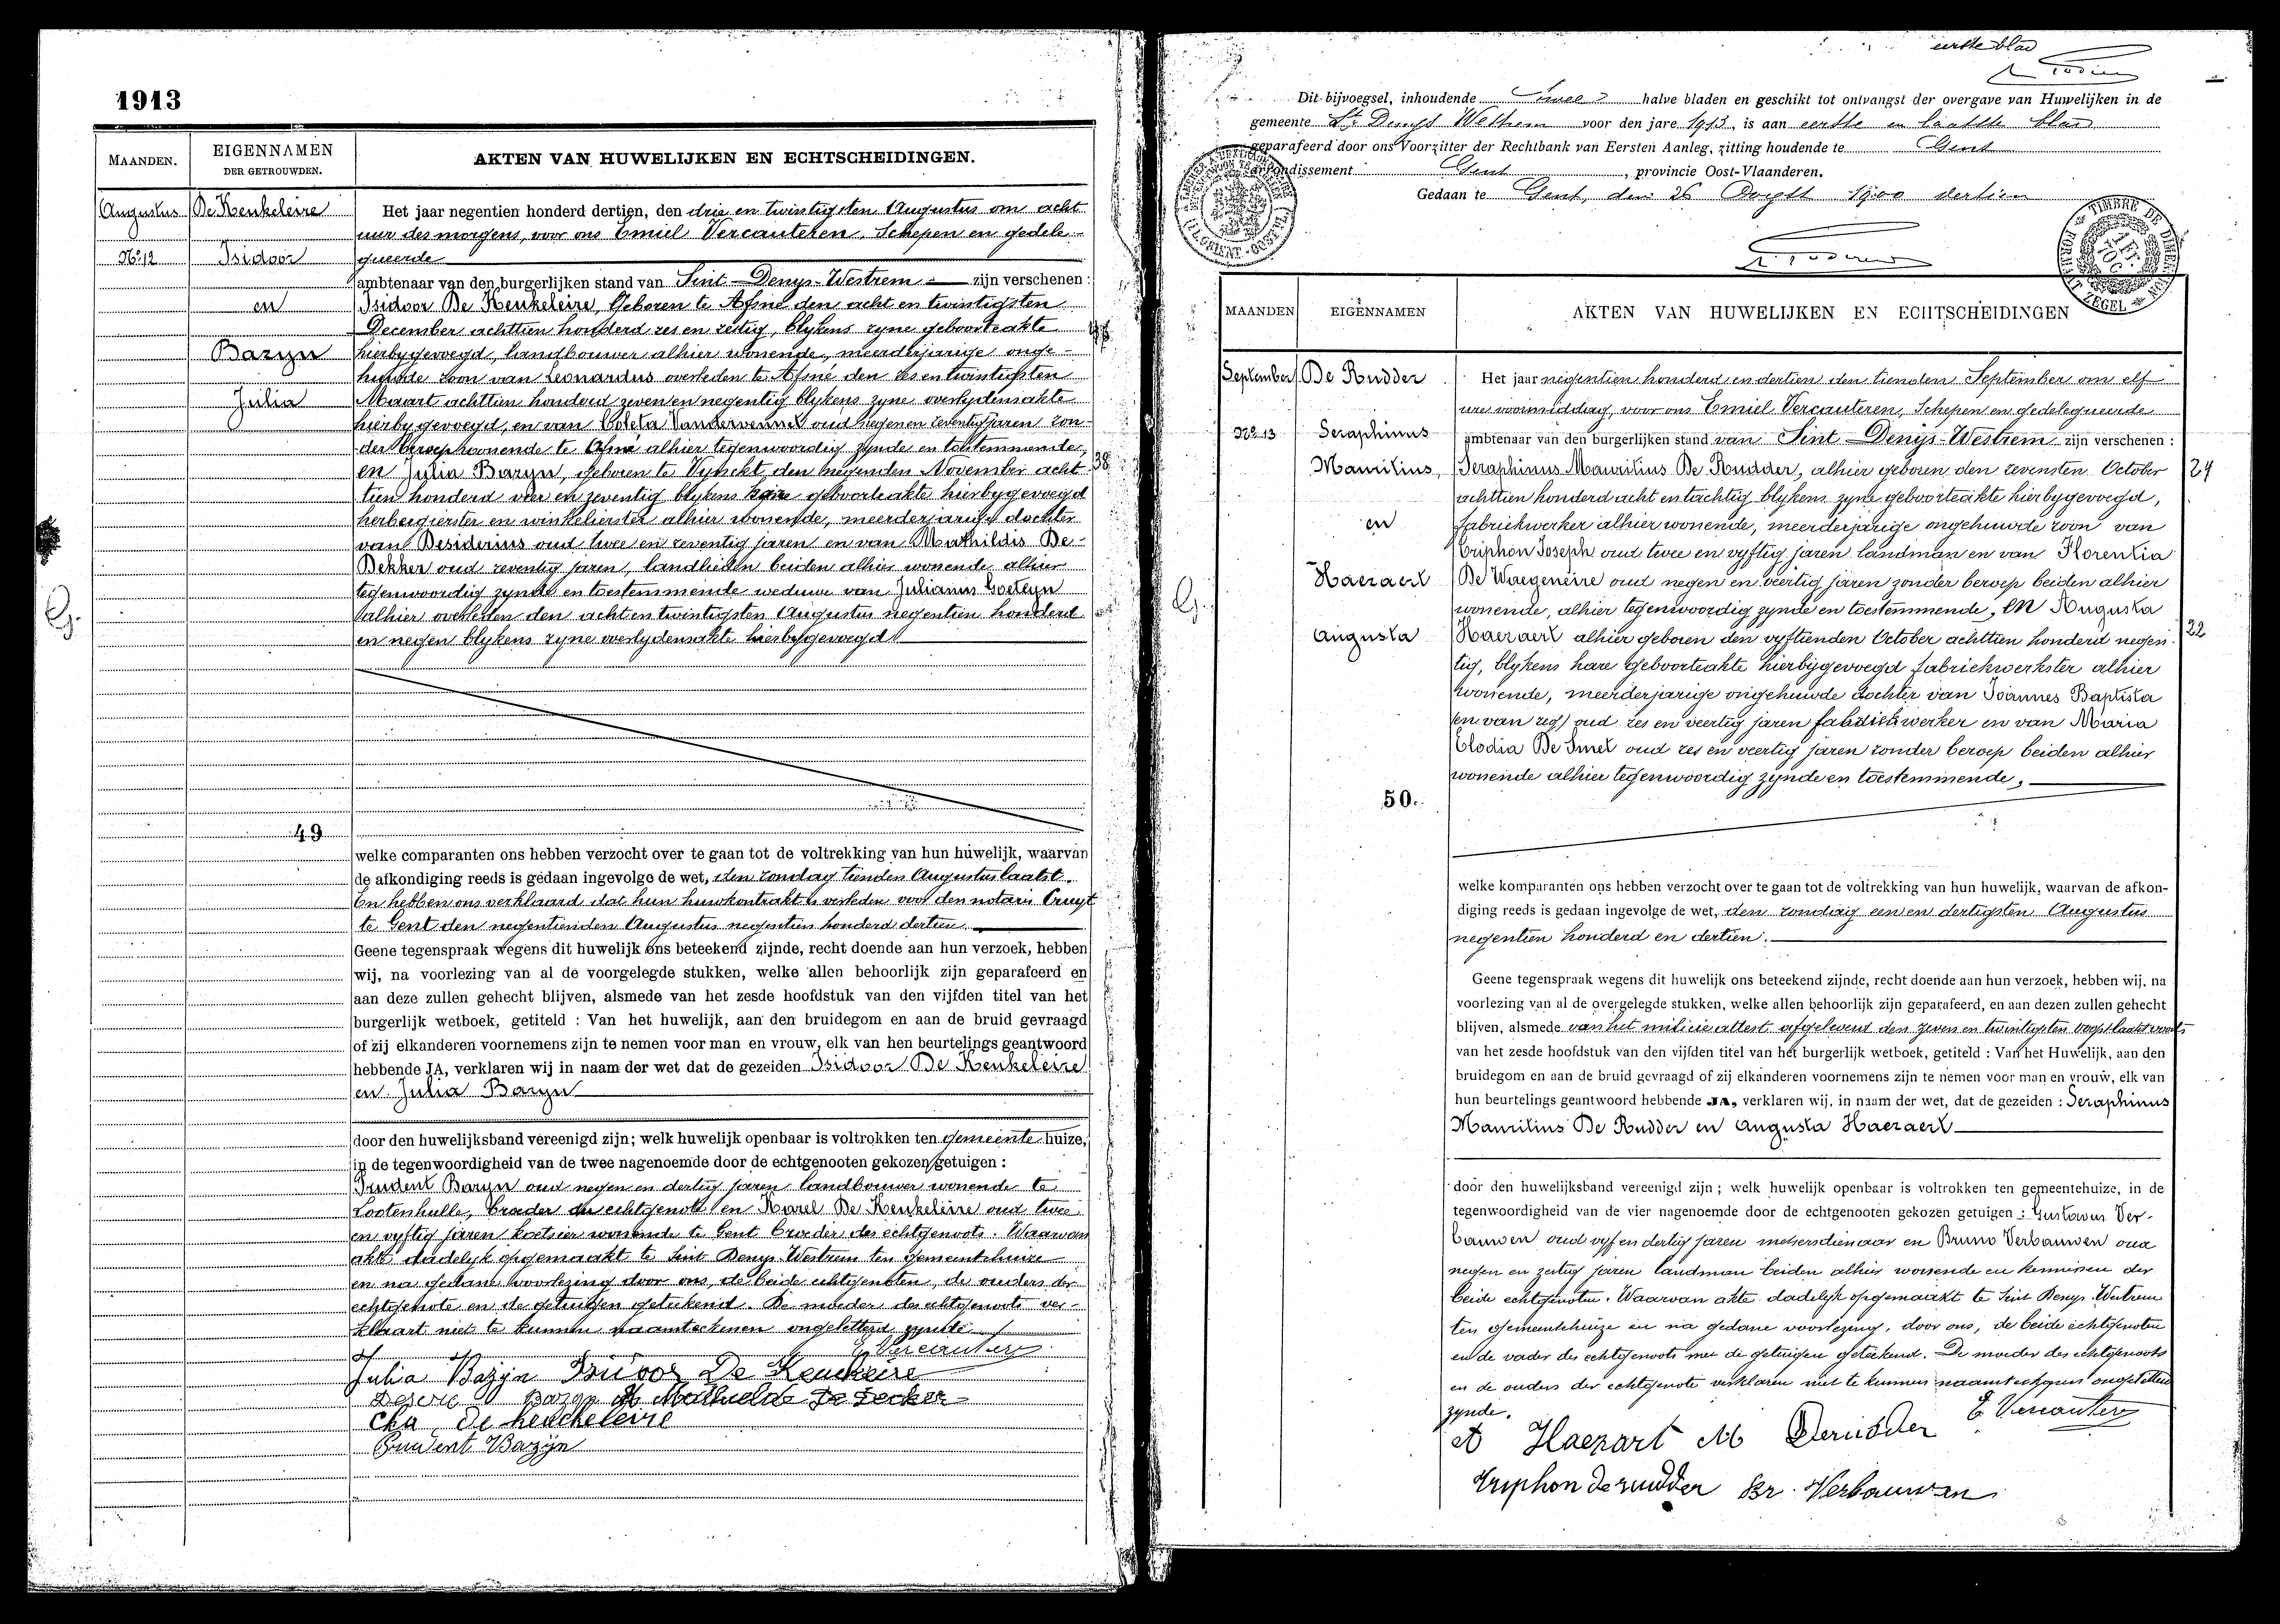 1913
MAANDEN.
EIGENNAMEN
DER GETROUWDEN.
AKTEN VAN HUWELIJKEN EN ECHTSCHEIDINGEN.
Augustus
No 12
De Keukeleire
Isidoor
en
Bazyn
Julia
49
Het jaar negentien honderd dertien, den drie en twintigsten Augustus om acht
uur des morgens, voor ons Emiel Vercauteren, Schepen en gedele-
gueerde
ambtenaar van den burgerlijken stand van Sint-Denys-Westrem zijn verschenen:
Isidoor De Keukeleire, Geboren te Afsné den acht en twintigsten
December achttien honderd zes en zestig, blykens zyne geboorteakte
hierbygevoegd, landbouwer alhier wonende, meerderjarige onge-
huwde zoon van Leonardus overleden te Afsné den zes en twintigsten
Maart achttien honderd zeven en negentig blykens zyne overlydensakte
hierbygevoegd, en van Coleta oud negen en zeventig jaren zon-
der beroep wonende te Afsné alhier tegenwoordig zynde en toestemmende,
en Julia Bazyn, geboren te Vynckt den negenden November acht-
38
tien honderd vier en zeventig blykens hare geboorteakte hierbygevoegd
herbergierster en winkelierster alhier wonende, meerderjarige dochter
van Desiderius oud twee en zeventig jaren en van Mathildis De
Dekker oud zeventig jaren, landlieden beiden alhier wonende alhier
tegenwoordig zynde en toestemmende weduwe van Julianus Goeteyn
alhier overleden den acht en twintigsten Augustus negentien honderd
en negen blykens zyne overlydensakte hierbygevoegd
welke comparanten ons hebben verzocht over te gaan tot de voltrekking van hun huwelijk, waarvan
de afkondiging reeds is gedaan ingevolge de wet, den zondag tienden Augustus laatst.
En hebben ons verklaard dat hun huwkontrakt is verleden voor den notaris Cruyt
te Gent den negentienden Augustus negentien honderd dertien.
Geene tegenspraak wegens dit huwelijk ons beteekend zijnde, recht doende aan hun verzoek, hebben
wij, na voorlezing van al de voorgelegde stukken, welke allen behoorlijk zijn geparafeerd en
aan deze zullen gehecht blijven, alsmede van het zesde hoofdstuk van den vijfden titel van het
burgerlijk wetboek, getiteld : Van het huwelijk, aan den bruidegom en aan de bruid gevraagd
of zij elkanderen voornemens zijn te nemen voor man en vrouw, elk van hen beurtelings geantwoord
hebbende JA, verklaren wij in naam der wet dat de gezeiden Isidoor De Keukeleire
en Julia Bazyn
door den huwelijksband vereenigd zijn; welk huwelijk openbaar is voltrokken ten gemeente huize,
in de tegenwoordigheid van de twee nagenoemde door de echtgenooten gekozen getuigen :
Prudent Bazyn oud negen en dertig jaren landbouwer wonende te
Lootenhulle, broeder der echtgenote en Karel De Keukeleire oud twee
en vyftig jaren koetsier wonende te Gent broeder des echtgenoots. Waarvan
akte dadelyk opgemaakt te Sint Denys-Westrem ten gemeentehuize
en na gedane voorlezing door ons, de beide echtgenooten, de ouders der
echtgenote en de getuigen geteekend. De moeder des echtgenoots ver-
klaart niet te kunnen naamteekenen ongeletterd zynde
E Vercauteren
Julia Bazijn Isidoor De Keukeleire
Desire Bazyn Mathilde De Decker
Cha de keuckeleire
Prudent Bazijn
eerste blad
Dit bijvoegsel, inhoudende twee halve bladen en geschikt tot ontvangst der overgave van Huwelijken in de
gemeente St Denys Westrem voor den jare 1913, is aan eerste en laatste blad
geparafeerd door ons Voorzitter der Rechtbank van Eersten Aanleg, zitting houdende te Gent
arrondissement Gent, provincie Oost-Vlaanderen.
Gedaan te Gent, den 26 Oogst 1900 dertien
TIMBRE DE DIMENSION
ZEGEL
MAANDEN
EIGENNAMEN
AKTEN VAN HUWELIJKEN EN ECHTSCHEIDINGEN
September
No 13
De Rudder
Seraphinus
Mauritius
en
Haezaert
Augusta
50.
Het jaar negentien honderd en dertien den tienden September om elf
ure voormiddag, voor ons Emiel Vercauteren, Schepen en gedelegueerde
ambtenaar van den burgerlijken stand van Sint-Denys-Westrem zijn verschenen :
Seraphinus Mauritius De Rudder, alhier geboren den zevensten October
24
achttien honderd acht en tachtig blykens zyne geboorteakte hierbygevoegd,
fabriekwerker alhier wonende, meerderjarige ongehuwde zoon van
Triphon Joseph oud twee en vyftig jaren landman en van Florentia
De Waegeneire oud negen en veertig jaren zonder beroep beiden alhier
wonende, alhier tegenwoordig zynde en toestemmende, en Augusta
Haezaert alhier geboren den vyftienden October achttien honderd negen-
22
tig, blykens hare geboorteakte hierbygevoegd fabriekwerkster alhier
wonende, meerderjarige ongehuwde dochter van Joannes Baptista
oud zes en veertig jaren fabriekwerker en van Maria
Elodia De Smet oud zes en veertig jaren zonder beroep beiden alhier
wonende alhier tegenwoordig zynde en toestemmende,
welke komparanten ons hebben verzocht over te gaan tot de voltrekking van hun huwelijk, waarvan de afkon-
diging reeds is gedaan ingevolge de wet, den zondag een en dertigsten Augustus
negentien honderd en dertien.
Geene tegenspraak wegens dit huwelijk ons beteekend zijnde, recht doende aan hun verzoek, hebben wij, na
voorlezing van al de overgelegde stukken, welke allen behoorlijk zijn geparafeerd, en aan dezen zullen gehecht
blijven, alsmede van het militie attest afgeleverd den zeven en twintigsten oogst laatst
van het zesde hoofdstuk van den vijfden titel van het burgerlijk wetboek, getiteld : Van het Huwelijk, aan den
bruidegom en aan de bruid gevraagd of zij elkanderen voornemens zijn te nemen voor man en vrouw, elk van
hun beurtelings geantwoord hebbende JA, verklaren wij, in naam der wet, dat de gezeiden : Seraphinus
Mauritius De Rudder en Augusta Haezaert
door den huwelijksband vereenigd zijn ; welk huwelijk openbaar is voltrokken ten gemeentehuize, in de
tegenwoordigheid van de vier nagenoemde door de echtgenooten gekozen getuigen : Gustavus Ver-
bauwen oud vyf en dertig jaren metsersdienaar en Bruno Verbauwen oud
negen en zestig jaren landman beiden alhier wonende en kennissen der
beide echtgenoten. Waarvan akte dadelyk opgemaakt te Sint Denys-Westrem
ten gemeentehuize en na gedane voorlezing, door ons, de beide echtgenoten
en de vader des echtgenoots met de getuigen geteekend. De moeder des echtgenoots
en de ouders der echtgenote verklaren niet te kunnen naamteekenen ongeletterd
zynde.
E Vercauteren
A Haezart M Derudder
Triphon de rudder Br. Verbauwen